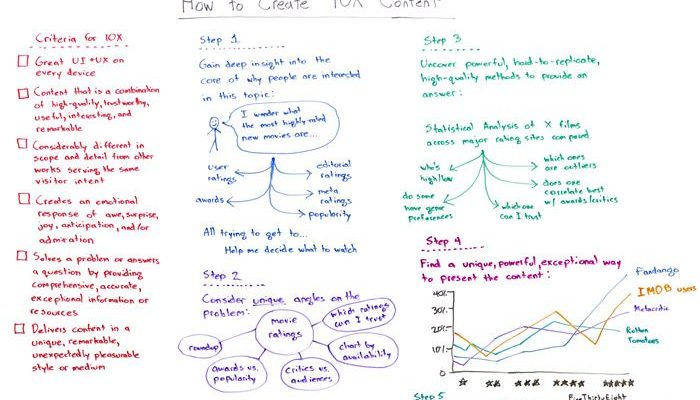 How to Create 10X Content
Criteria for 10X
Great UI + UX on
every device
Content that is a combination
of high-quality, trustworthy,
useful, interesting, and
remarkable
Considerably different in
scope and detail from other
works serving the same
visitor intent
Creates an emotional
response of awe, surprise,
joy, anticipation, and/or
admiration
Solves a problem or answers
a question by providing
comprehensive, accurate,
exceptional information or
resources
Delivers content in a
unique, remarkable,
unexpectedly pleasurable
style or medium
Step 1
Gain deep insight into the
core of why people are interested
in this topic:
I wonder what
the most highly rated
new movies are...
user
ratings
editorial
ratings
awards
meta
ratings
popularity
All trying to get to...
Help me decide what to watch
Step 2
Consider unique angles on the
problem:
movie
ratings
which ratings
can I trust
roundup
chart by
availability
awards vs.
popularity
critics vs.
audiences
Step 3
Uncover powerful, hard-to-replicate,
high-quality methods to provide an
answer:
Statistical Analysis of X films
across major rating sites compared
who's
high/low
which ones
are outliers
do some
have genre
preferences
does one
correlate best
w/ awards/critics
which one
can I trust
Step 4
Find a unique, powerful, exceptional way
to present the content:
Fandango
IMDB users
Metacritic
Rotten
Tomatoes
40%
30%
20%
10%
0
FiveThirtyEight
Step 5